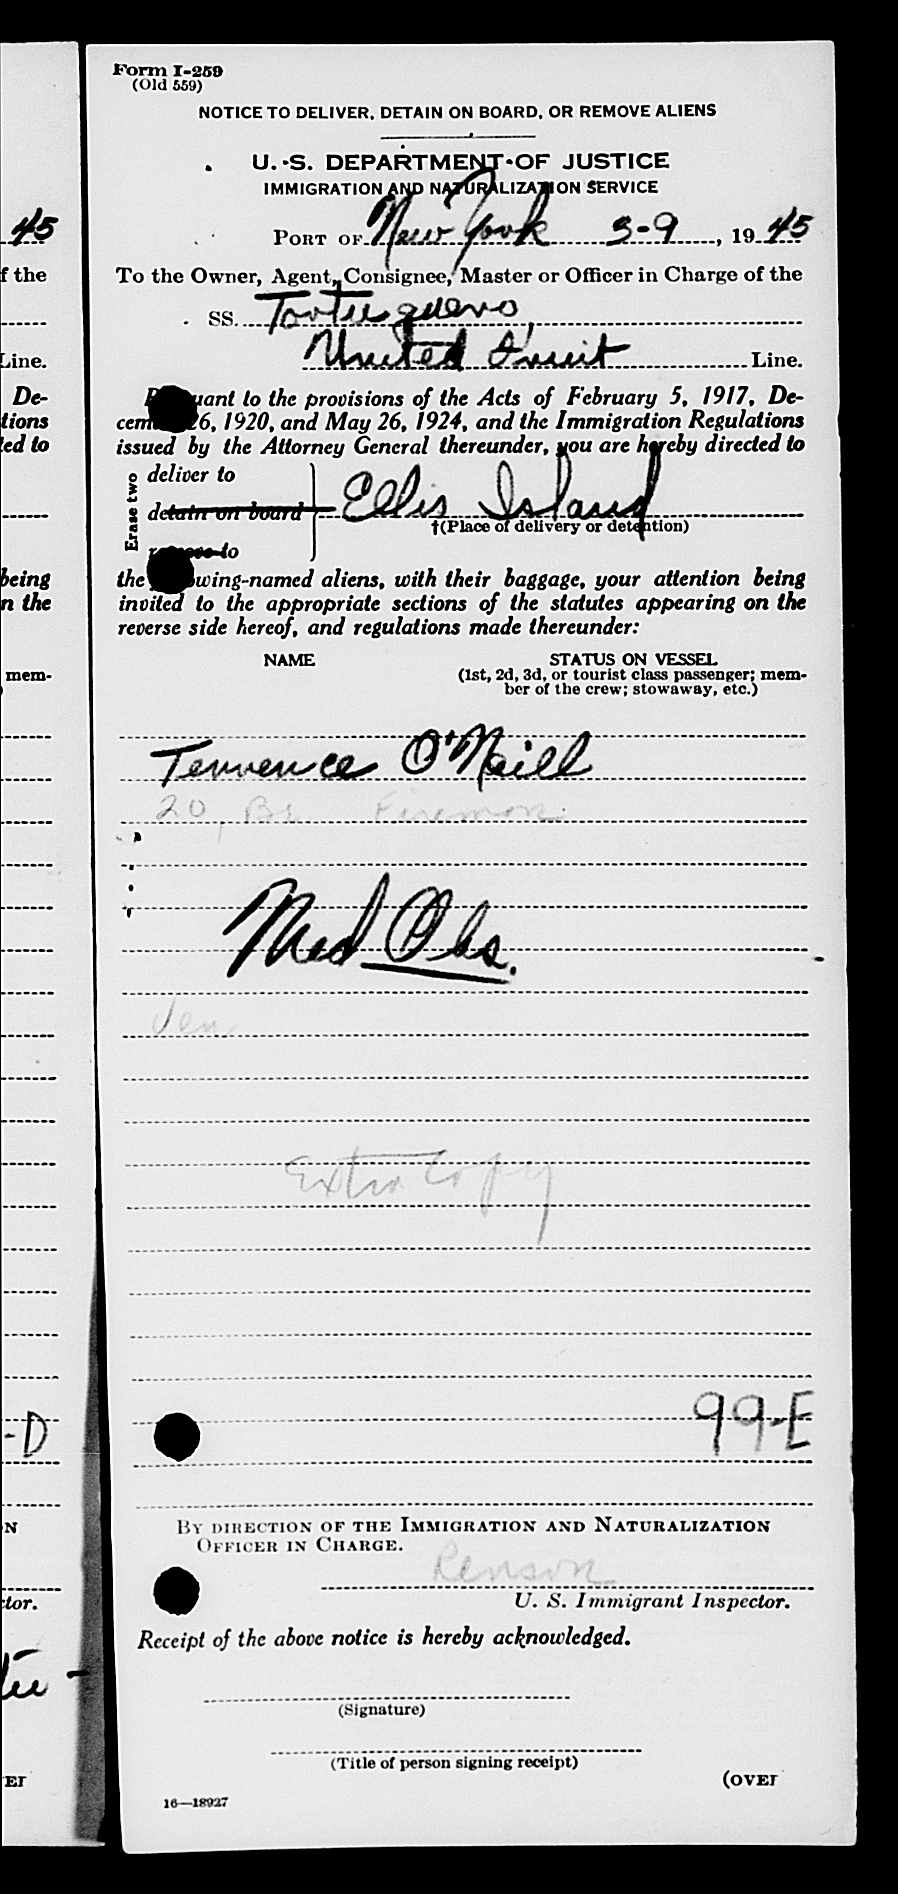 Form I-259
(Old 559)
NOTICE TO DELIVER, DETAIN ON BOARD, OR REMOVE ALIENS
U. S. DEPARTMENT OF JUSTICE
IMMIGRATION AND NATURALIZATION SERVICE
45
PORT OF New York 3-9, 1945
f the
To the Owner, Agent, Consignee, Master or Officer in Charge of the
SS. Tortuguero
Line.
United Fruit Line.
De-
uant to the provisions of the Acts of February 5, 1917, De-
tions
cem 26, 1920, and May 26, 1924, and the Immigration Regulations
ed to
issued by the Attorney General thereunder, you are hereby directed to
Erase two
deliver to
detain on board Ellis Island
†(Place of delivery or detention)
to
being
the owing-named aliens, with their baggage, your attention being
n the
invited to the appropriate sections of the statutes appearing on the
reverse side hereof, and regulations made thereunder:
NAME STATUS ON VESSEL
mem-
(1st, 2d, 3d, or tourist class passenger; mem-
ber of the crew; stowaway, etc.)
Terrence O'Neill
20, Br. Fireman
Med Obs.
Ven
Extra Copy
-D
99-E
N
BY DIRECTION OF THE IMMIGRATION AND NATURALIZATION
OFFICER IN CHARGE.
Renson
ctor.
U. S. Immigrant Inspector.
Receipt of the above notice is hereby acknowledged.
(Signature)
(Title of person signing receipt)
ER
(OVER
16—18927